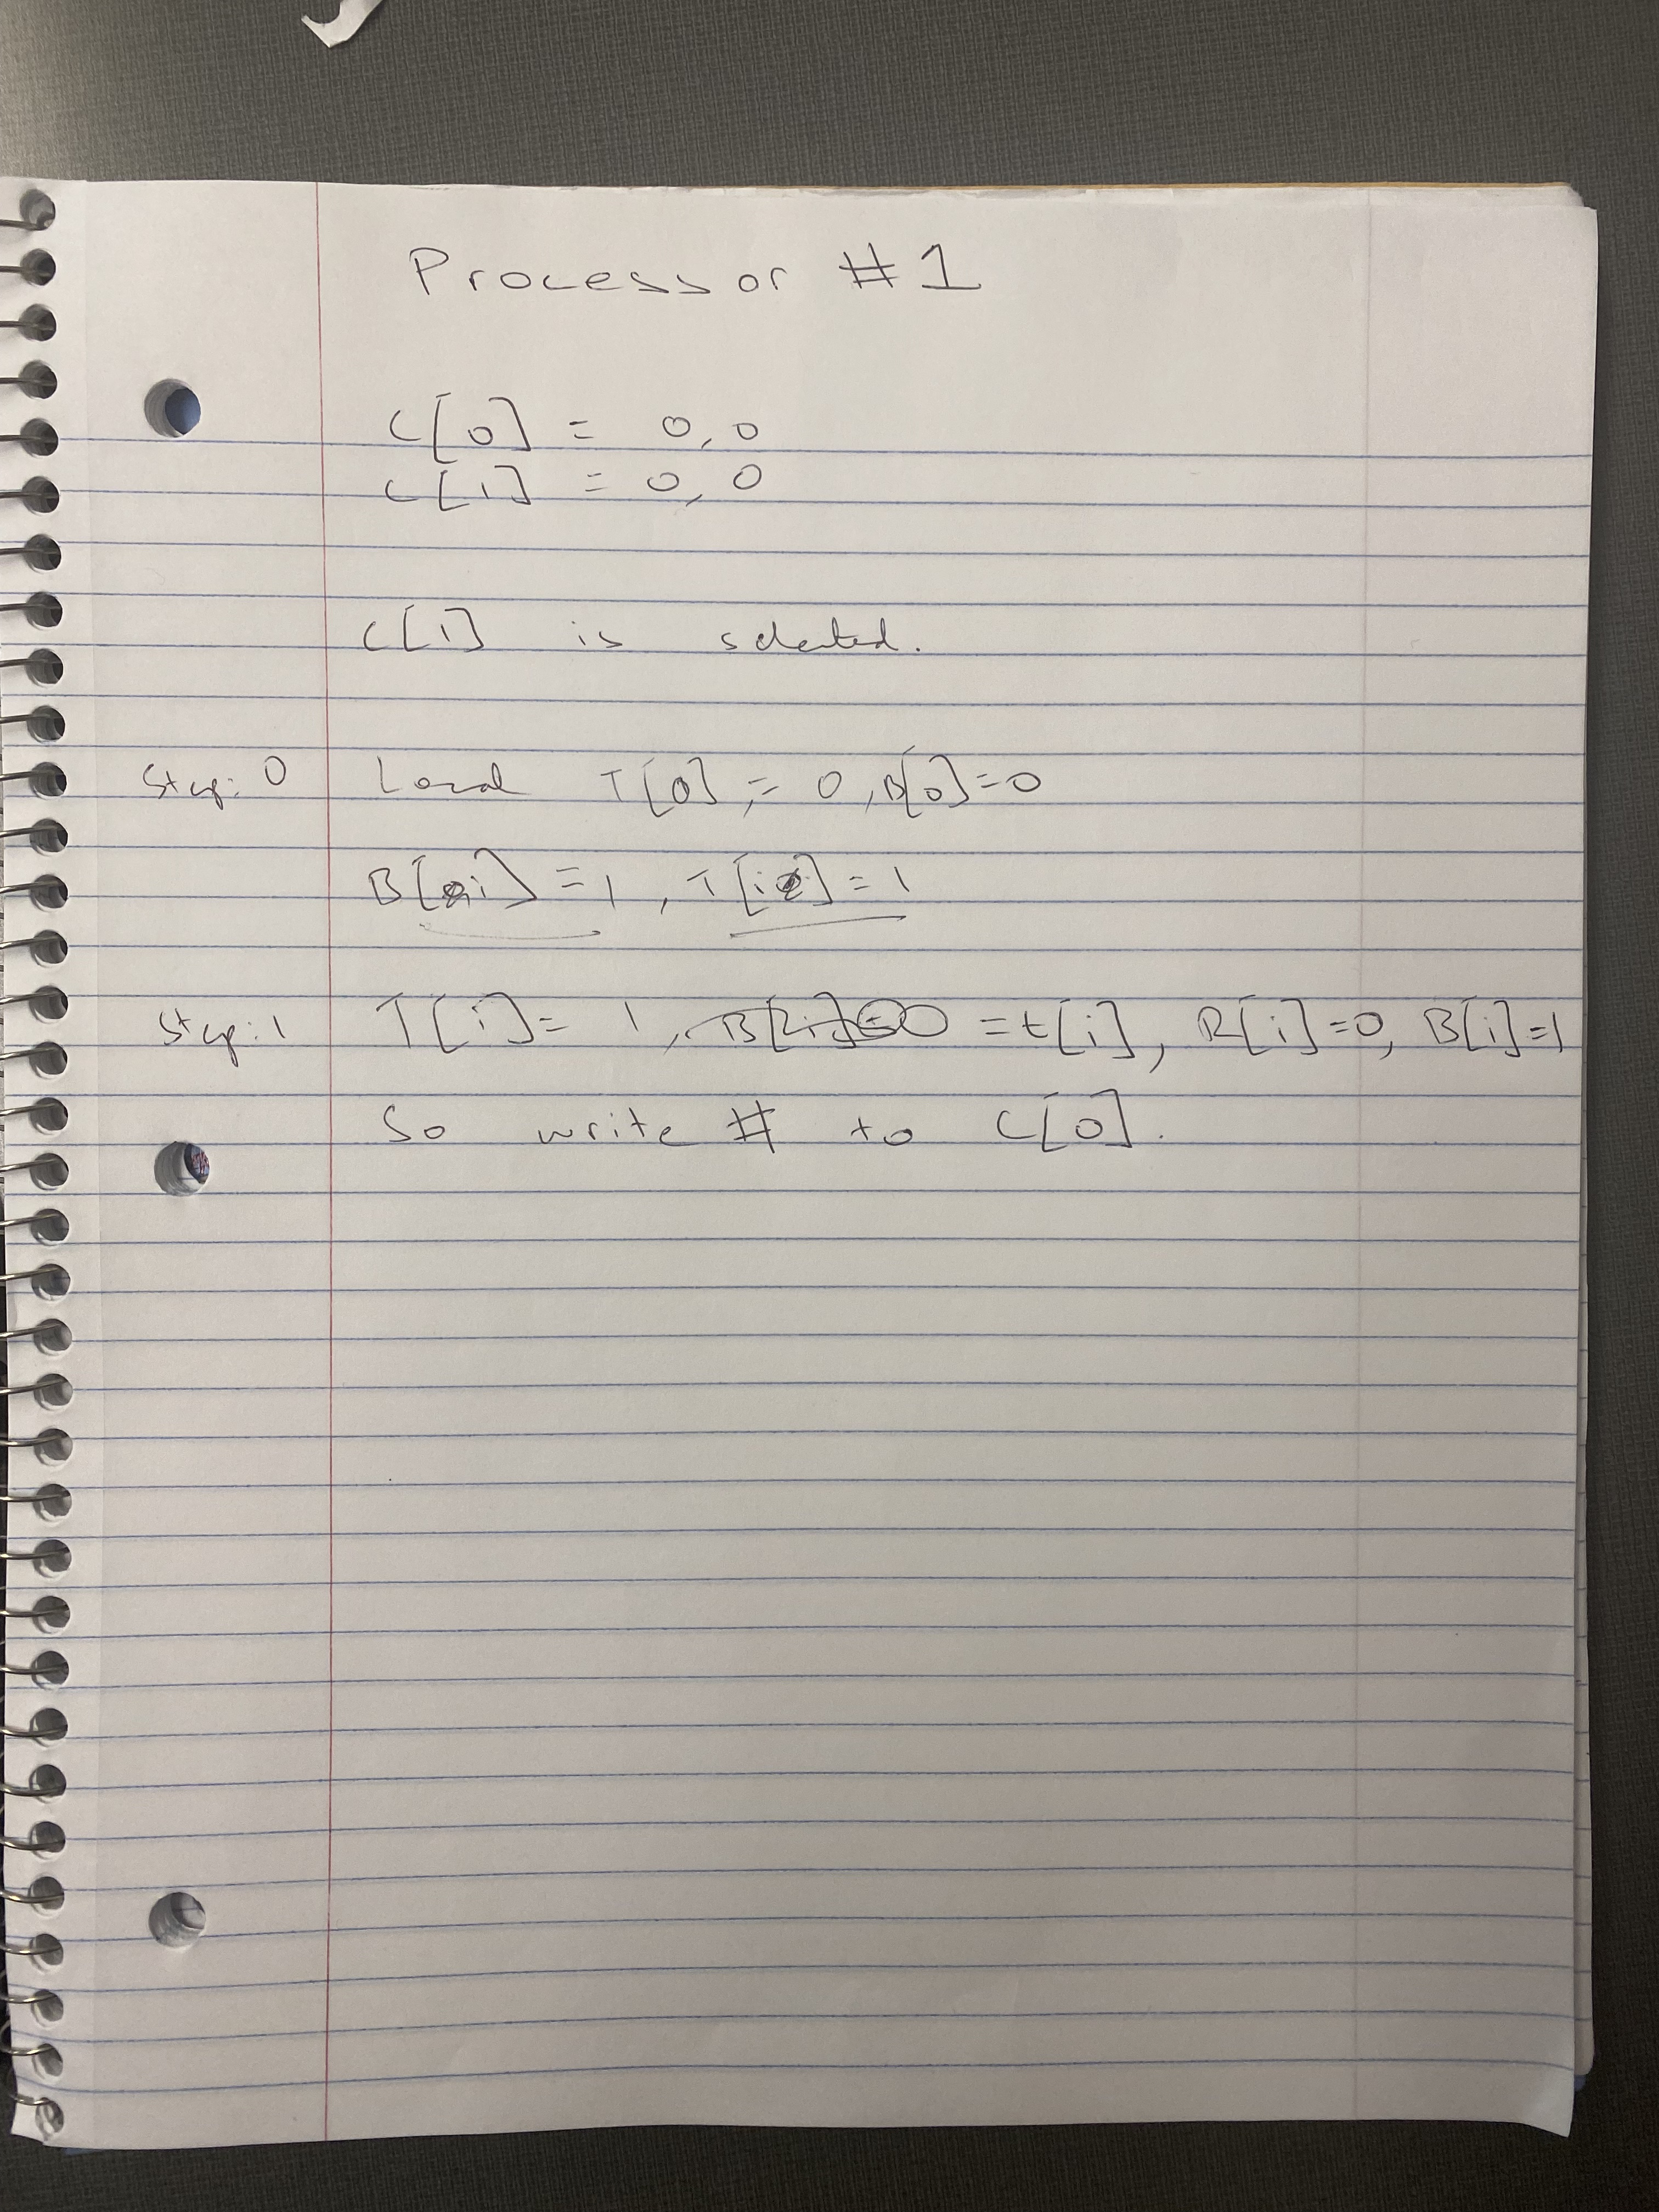 Processor #1
C[0] = 0,0
C[1] = 0,0
C[1] is selected.
Step: 0 Local T[0] = 0, B[0]=0
B[i] = 1, T[i] = 1
Step: 1 T[i] = 1, = t[i], R[i]=0, B[i]=1
So write # to C[0].